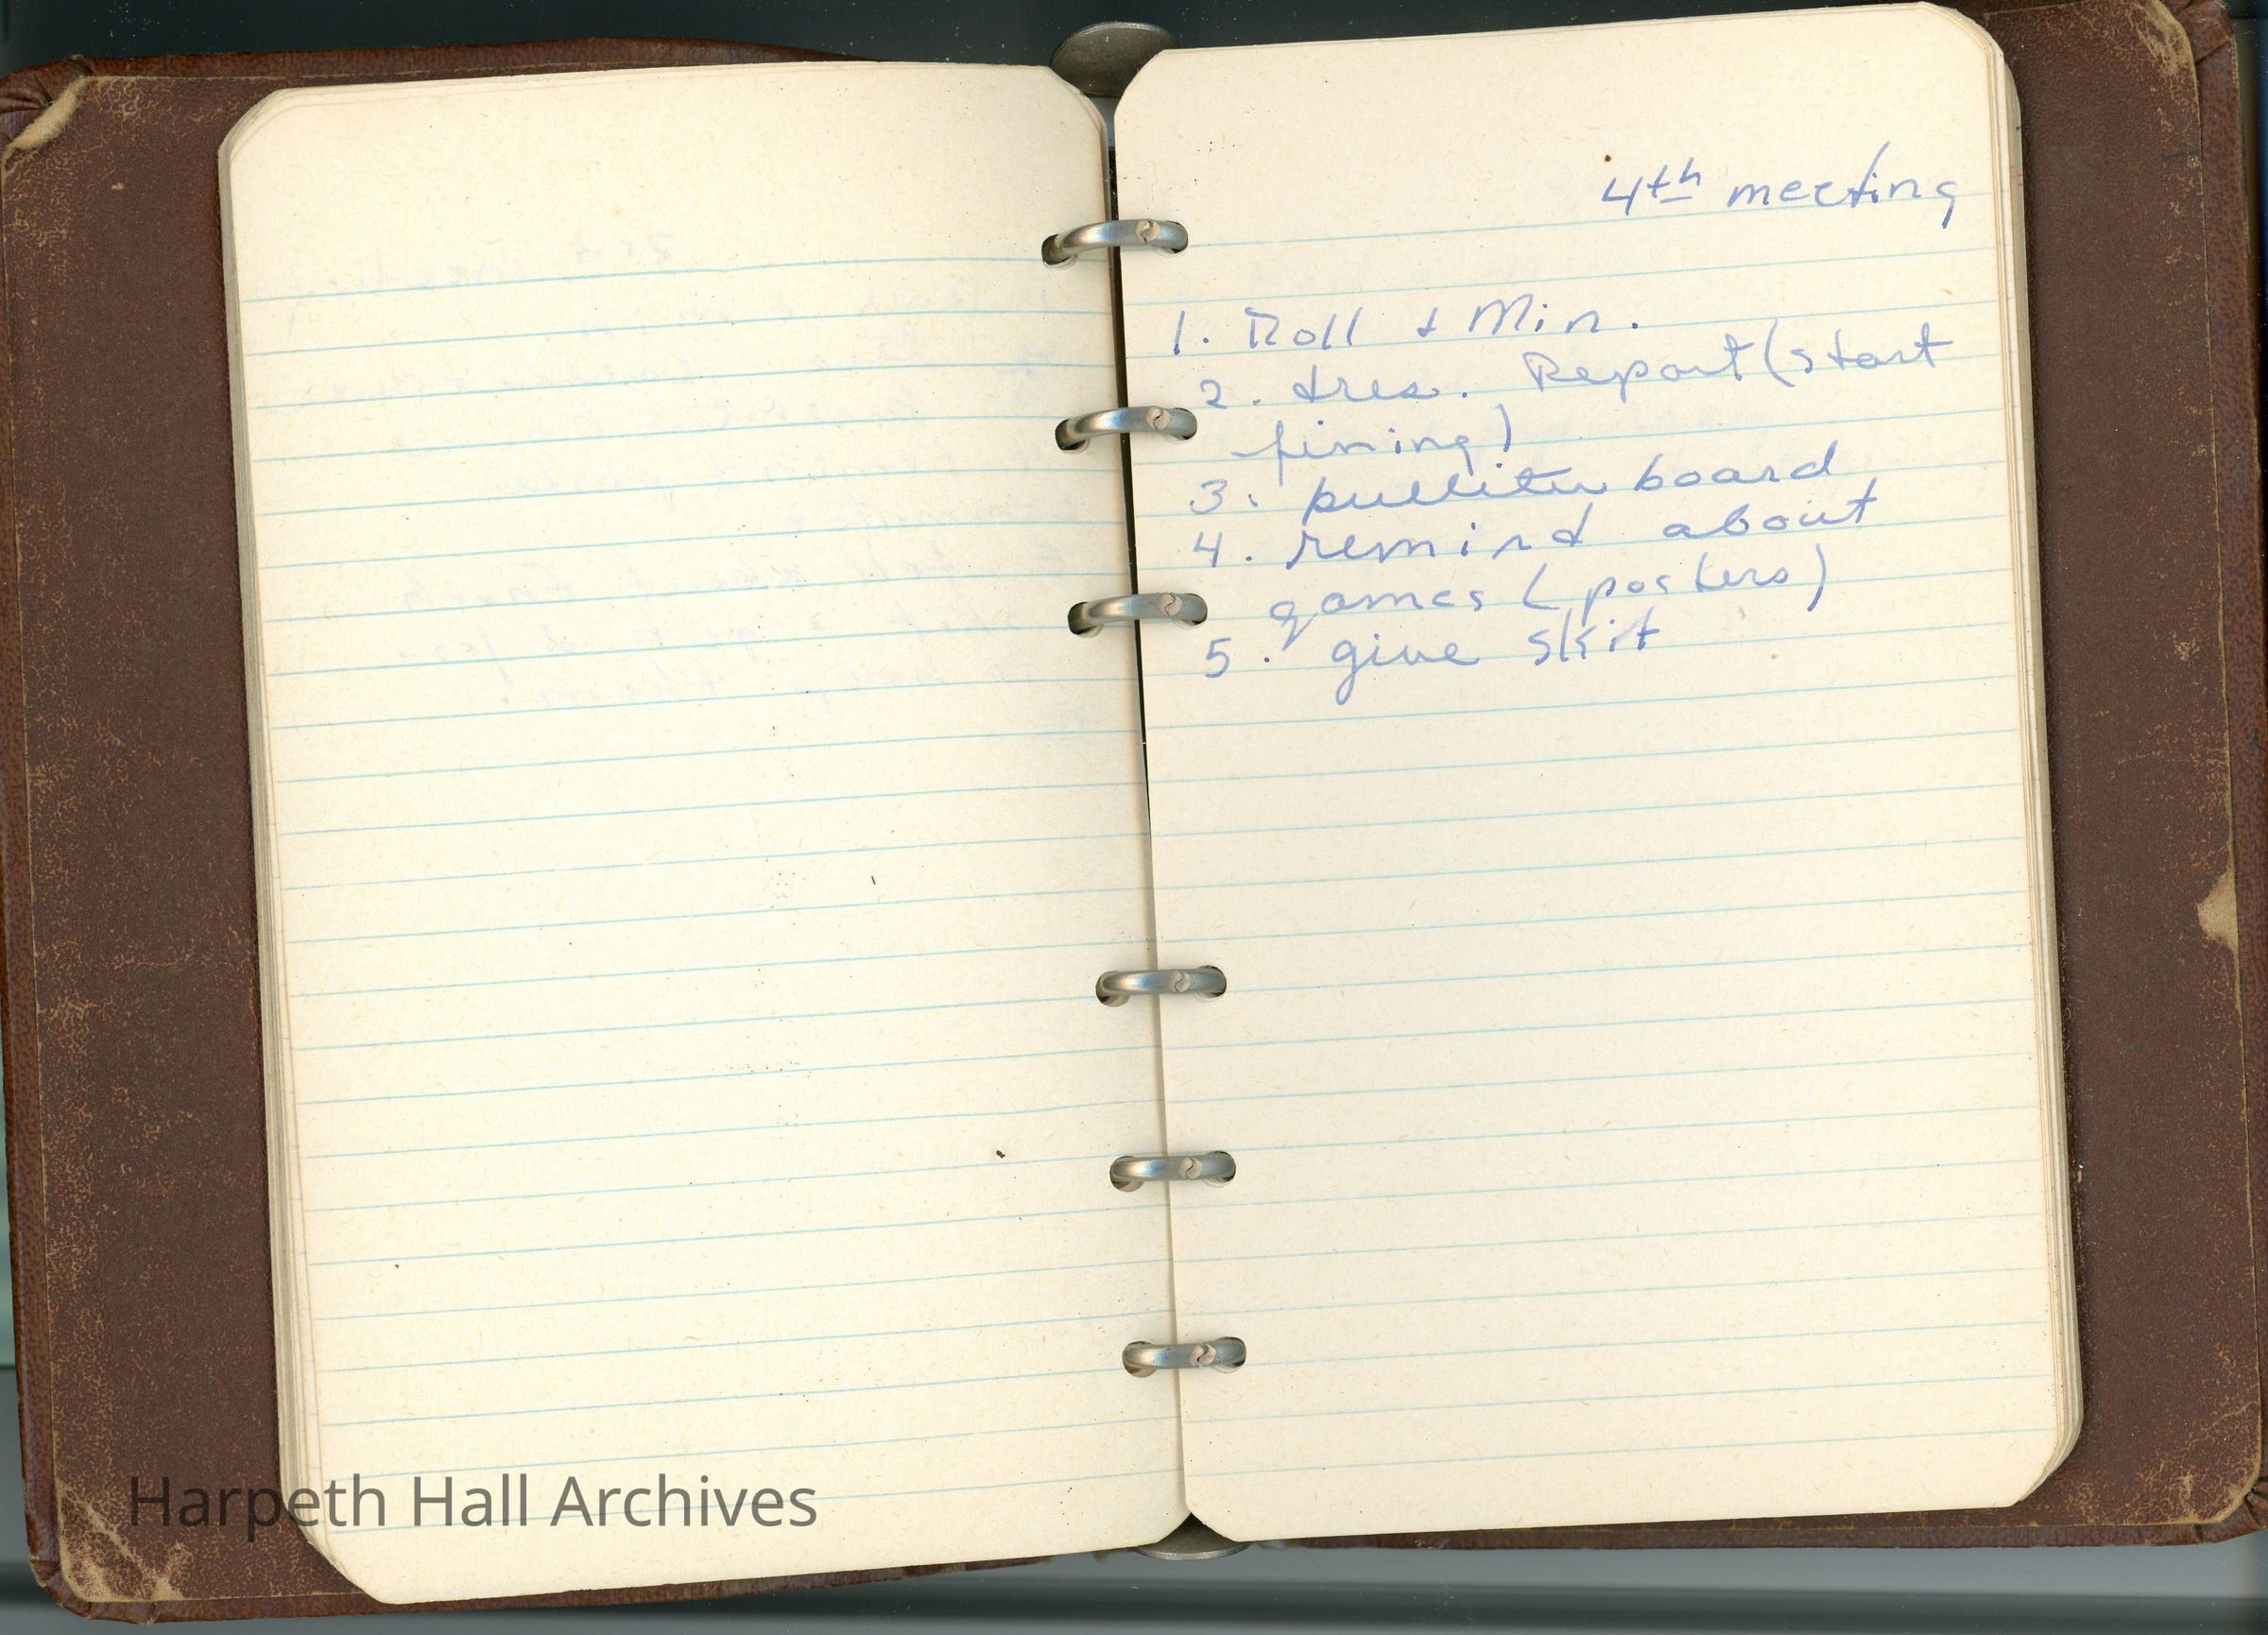 4th meeting
1. Roll & Min.
2. tres. Report (start
fining)
3. bulliten board
4. remind about
games (posters)
5. give skit
Harpeth Hall Archives